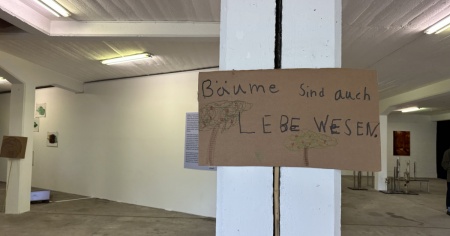 Bäume sind auch
LEBEWESEN.